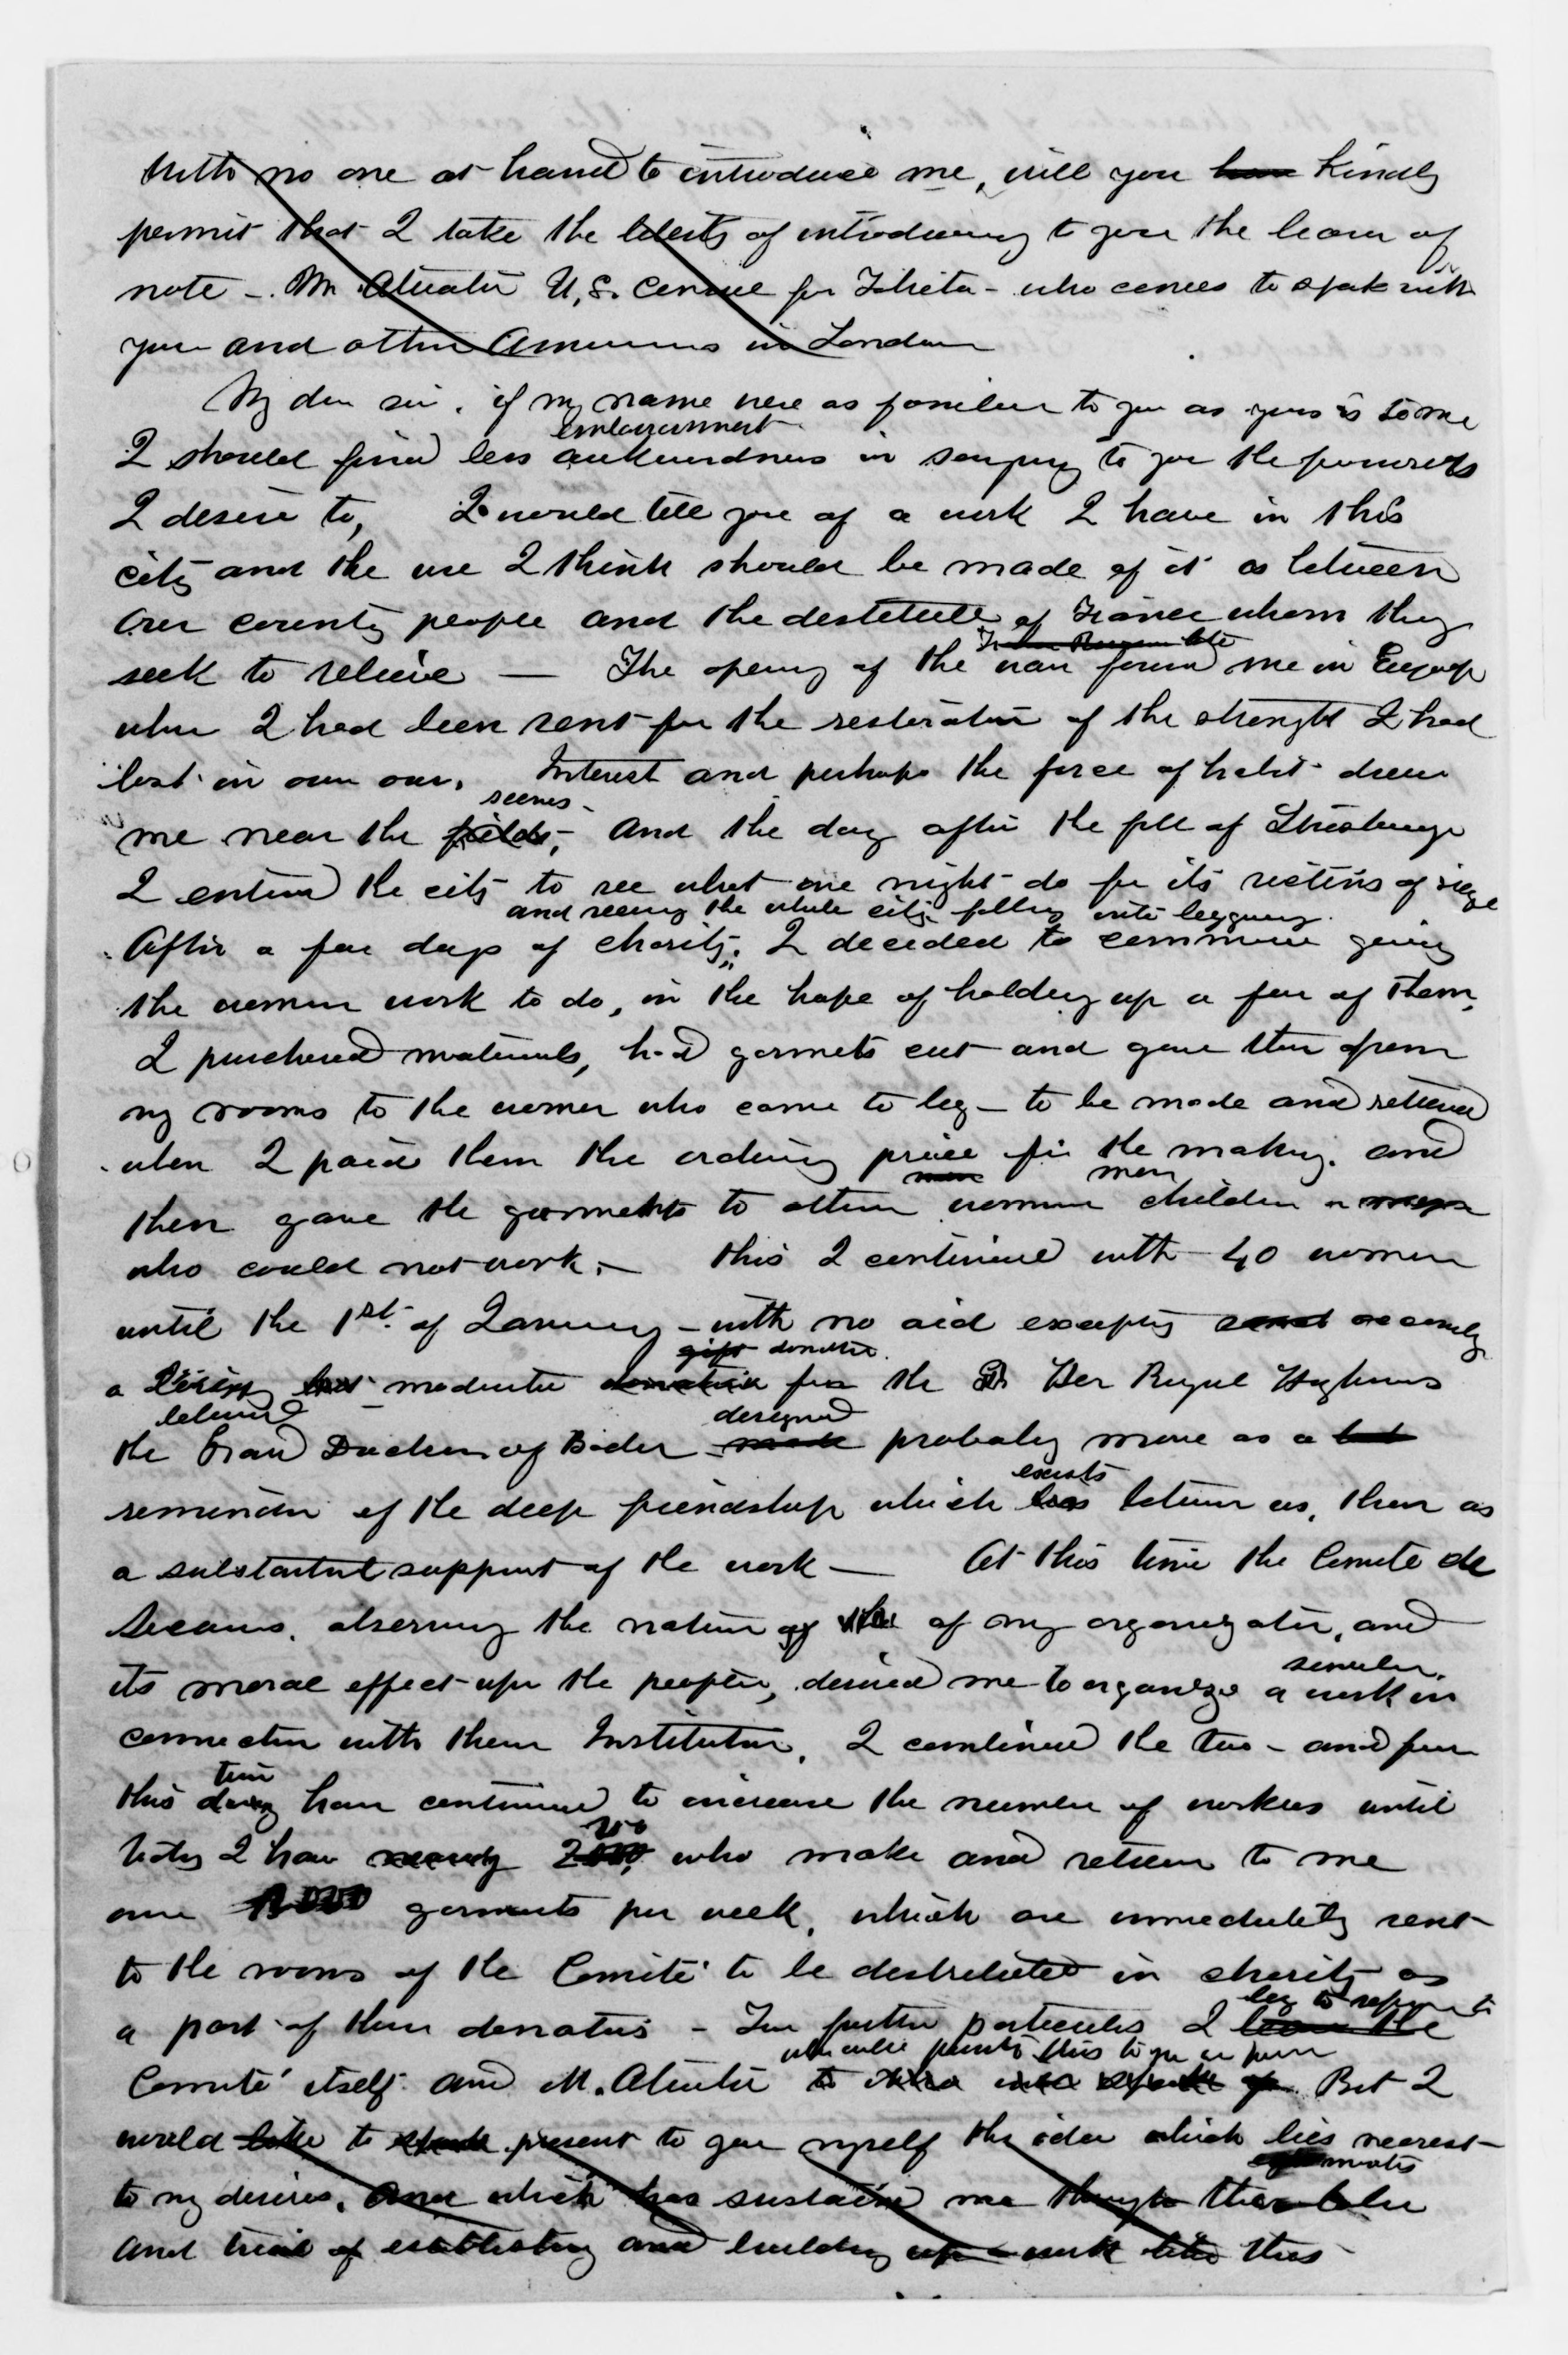 With no one at hand to introduce me, will you have kindly
permit that I take the liberty of introducing to you the bearer of
note - Mr Atwater U.S. Consul for Tahita - who comes to speak with
you and other Americans in London
My dear sir, if my name were as familiar to you as yours is to me
embarrassment
I should find less awkwardness in saying to you the few words
I desire to, I would tell you of a work I have in this
city and the use I think should be made of it as between
our country people and the destitute of France whom they
seek to relieve — The opening of the war found me in Europe
when I had been sent for the restoration of the strength I had
lost in our own. Interest and perhaps the force of habit drew
scenes
me near the fields, and the day after the fall of Strasburg
I entered the city to see what one might do for its victims of siege
and seeing the whole city falling into beggary
After a few days of charity, I decided to commence giving
the women work to do, in the hope of holding up a few of them,
I purchased materials, had garments cut and gave them from
my rooms to the women who came to beg - to be made and returned
when I paid them the ordinary price for the making. and
men men
then gave the garments to other women children or
who could not work. - this I continued with 40 women
until the 1st. of January - with no aid excepting
gift donation
a but moderate donation from the Her Royal Highness
beloved designed
the Grand Duchess of Baden - made probably more as a
exists
reminder of the deep friendship which has between us, than as
a substantial support of the work — At this time the Comite de
Secours, observing the nature of the of my organization, and
similar
its moral effect upon the people, desired me to organize a work in
connection with their Institution. I combined the two - and from
time
this day have continued to increase the number of workers until
today I have nearly who make and return to me
over garments per week, which are immediately sent
to the rooms of the Comité to be distributed in charity as
beg to refer to
a part of their donations - For further particulars I leave the
who will present this to you in person
Comité itself and M. Atwater to But I
would like to speak present to you myself the idea which lies nearest
to my desires. And which has sustained me through the labor
and trial of establishing and building up a work like this